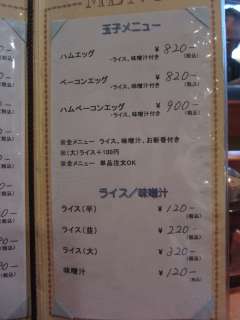 MENU
玉子メニュー
ハムエッグ ¥820-
-ライス、味噌汁付き (税込)
ベーコンエッグ ¥820-
-ライス、味噌汁付き (税込)
ハムベーコンエッグ ¥900-
-ライス、味噌汁付き (税込)
※全メニュー ライス、味噌汁、お新香付き
※(大)ライス+100円
※全メニュー 単品注文OK
ライス/味噌汁
ライス(半) ¥120-
(税込)
ライス(並) ¥220-
(税込)
ライス(大) ¥320-
(税込)
味噌汁 ¥120-
(税込)